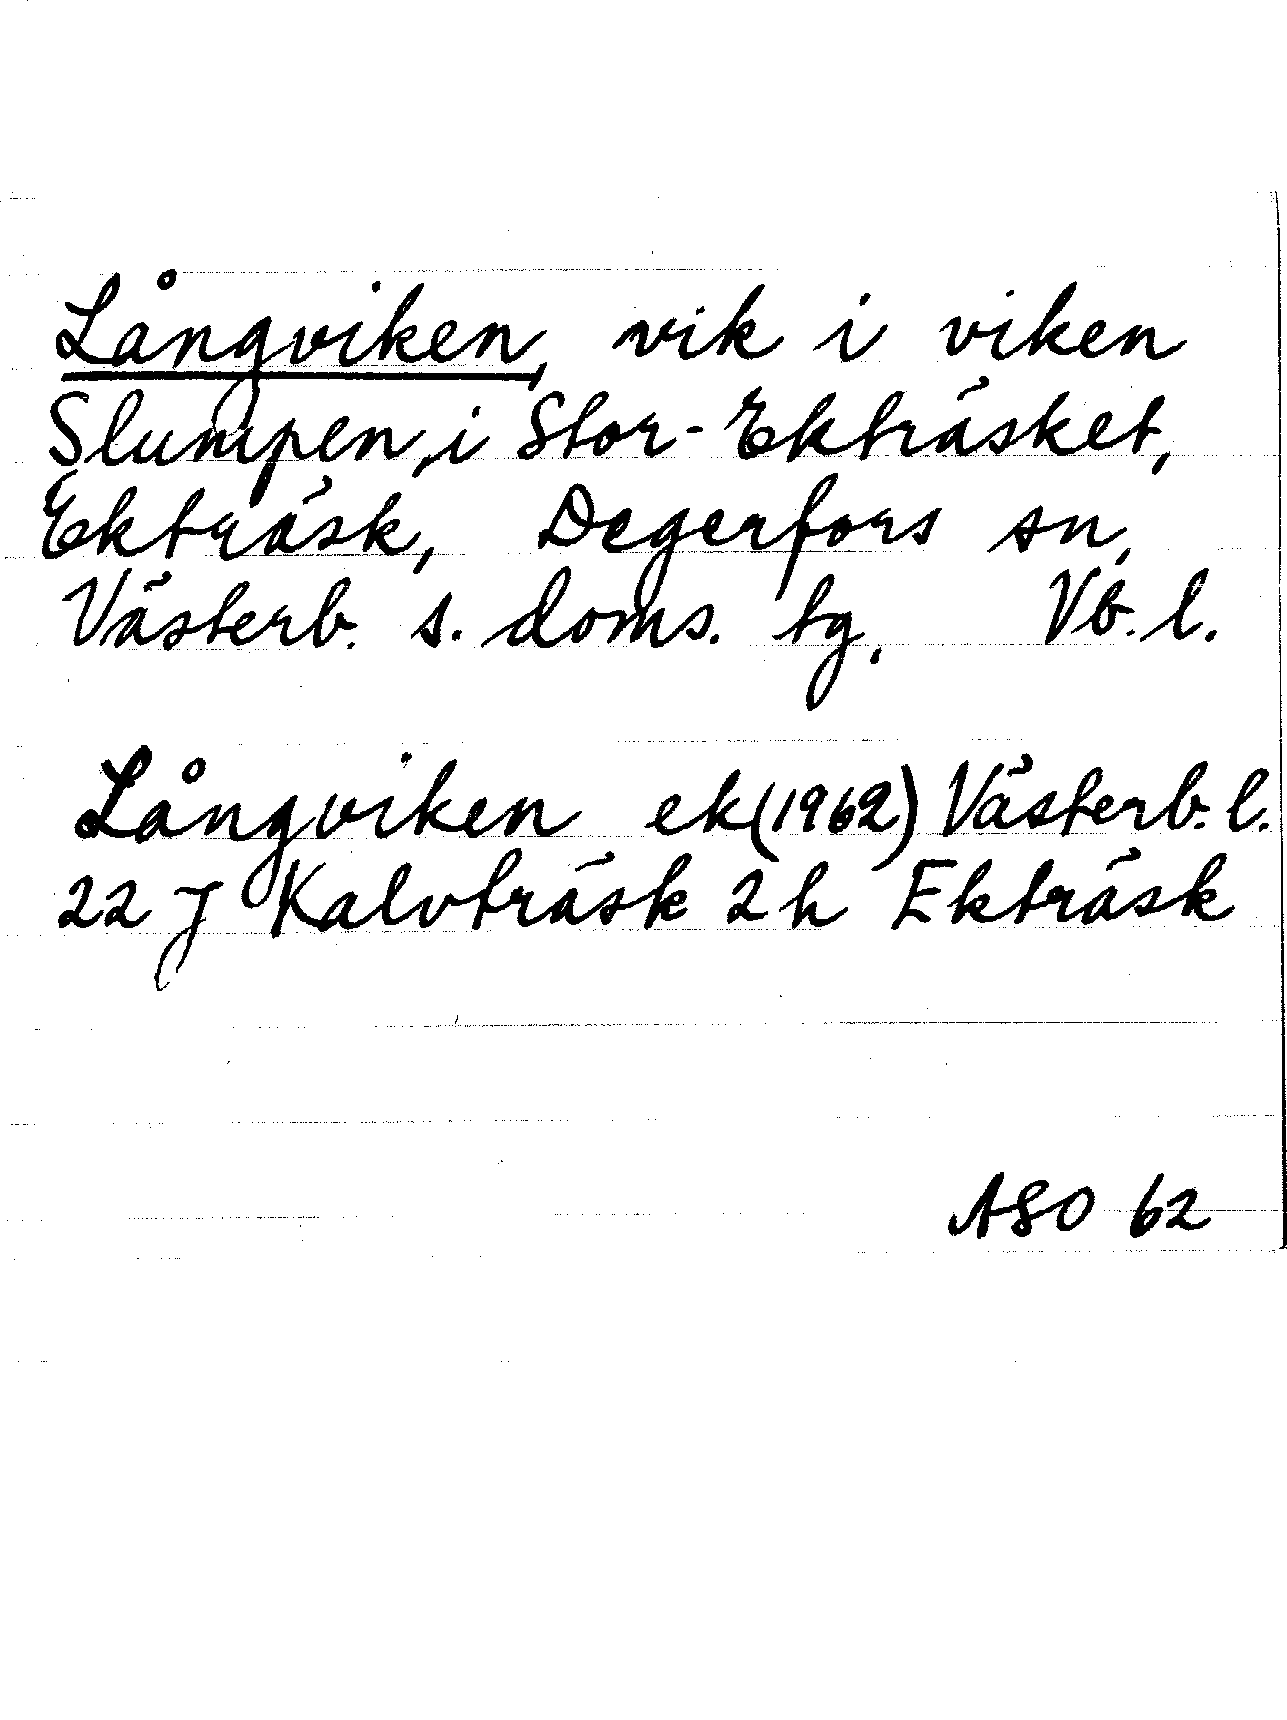 Långviken, vik i viken
Slumpen, i Stor-Ekträsket,
Ekträsk, Degerfors sn,
Västerb. s. doms. tg, Vb. l.
Långviken ek (1962) Västerb. l.
22 J Kalvträsk 2 h Ekträsk
ASO 62